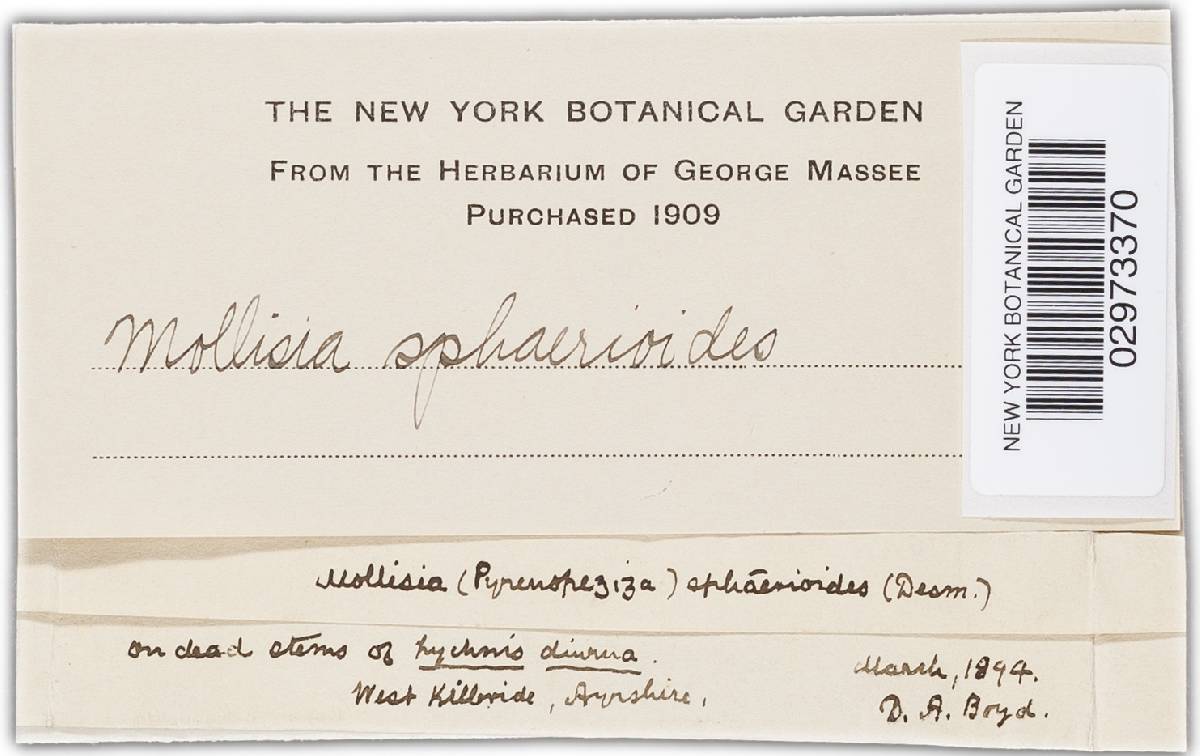 THE NEW YORK BOTANICAL GARDEN
FROM THE HERBARIUM OF GEORGE MASSEE
PURCHASED 1909
Mollisia sphaerioides
NEW YORK BOTANICAL GARDEN
02973370
Mollisia (Pyrenopeziza) sphaerioides (Desm.)
on dead stems of Lychnis diurna.
West Kilbride, Ayrshire,
March, 1894.
D. A. Boyd.